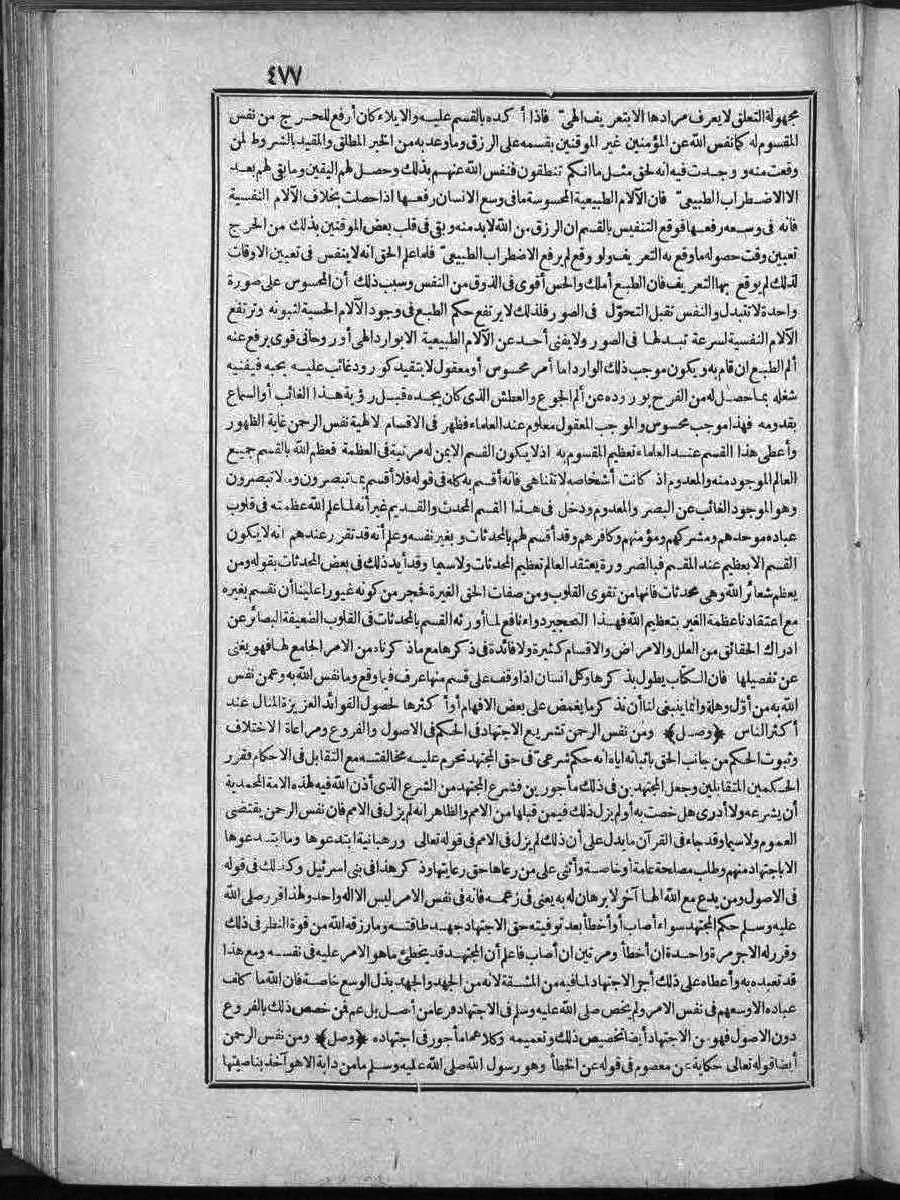 ٤٧٧
مجهولة التعلق لا يعرف مرادها الا بتعريف الهى فاذا أكده بالقسم عليه والايلاء كان أرفع للحرج من نفس
المقسوم له كما نفس الله عن المؤمنين غير الموقنين بقسمه على الرزق وما وعد به من الخبر المطلق والمقيد بالشروط لمن
وقعت منه ووجدت فيه انه لحق مثل ما انكم تنطقون فنفس الله عنهم بذلك وحصل لهم اليقين وما بقى لهم بعد
الا الاضطراب الطبيعى فان الآلام الطبيعية المحسوسة ما فى وسع الانسان رفعها اذا حصلت بخلاف الآلام النفسية
فانه فى وسعه رفعها فوقع التنفيس بالقسم ان الرزق من الله لا بد منه وبقى فى قلب بعض الموقنين بذلك من الحرج
تعيين وقت حصوله ما وقع به التعريف ولو وقع لم يرفع الاضطراب الطبيعى فلما علم الحق انه لا ينفس فى تعيين الاوقات
لذلك لم يوقع بها التعريف فان الطبع أملك والحس أقوى فى الذوق من النفس وسبب ذلك أن المحسوس على صورة
واحدة لا تتبدل والنفس تقبل التحوّل فى الصور فلذلك لا يرتفع حكم الطبع فى وجود الآلام الحسية لثبوته وترتفع
الآلام النفسية لسرعة تبدلها فى الصور ولا يفنى أحد عن الآلام الطبيعية الا بوارد الهى أو روحانى قوى يرفع عنه
ألم الطبع ان قام به ويكون موجب ذلك الوارد اما أمر محسوس أو معقول لا يتقيد كورود غائب عليه يحبه فيفنيه
شغله بما حصل له من الفرح بوروده عن ألم الجوع والعطش الذى كان يجده قبل رؤية هذا الغائب أو السماع
بقدومه فهذا موجب محسوس والموجب المعقول معلوم عند العلماء فظهر فى الاقسام الالهية نفس الرحمن غاية الظهور
وأعطى هذا القسم عند العلماء تعظيم المقسوم به اذ لا يكون القسم الا بمن له مرتبة فى العظمة فعظم الله بالقسم جميع
العالم الموجود منه والمعدوم اذ كانت أشخاصه لا تتناهى فانه أقسم به كله فى قوله فلا أقسم بما تبصرون وما لا تبصرون
وهو الموجود الغائب عن البصر والمعدوم ودخل فى هذا القسم المحدث والقديم غير أنه لما علم الله عظمته فى قلوب
عباده موحدهم ومشركهم ومؤمنهم وكافرهم وقد أقسم لهم بالمحدثات وبغير نفسه وعلم أنه قد تقرر عندهم انه لا يكون
القسم الا بعظيم عند المقسم فبالضرورة يعتقد العالم تعظيم المحدثات ولا سيما وقد أيد ذلك فى بعض المحدثات بقوله ومن
يعظم شعائر الله وهى محدثات فانها من تقوى القلوب ومن صفات الحق الغيرة فحجر من كونه غيورا علينا أن نقسم بغيره
مع اعتقادنا عظمة الغير بتعظيم الله فهذا التحجير دواء نافع لما أورثه القسم بالمحدثات فى القلوب الضعيفة البصائر عن
ادراك الحقائق من العلل والامراض والاقسام كثيرة ولا فائدة فى ذكرها مع ما ذكرناه من الامر الجامع لها فهو يغنى
عن تفصيلها فان الكتاب يطول بذكرها وكل انسان اذا وقف على قسم منها عرف فيما وقع وما نفس الله به وعمن نفس
الله به من أوّل وهلة وانما ينبغى لنا أن نذكر ما يغمض على بعض الافهام أو أكثرها لحصول الفوائد العزيزة المنال عند
أكثر الناس ﴿وصل﴾ ومن نفس الرحمن تشريع الاجتهاد فى الحكم فى الاصول والفروع ومراعاة الاختلاف
وثبوت الحكم من جانب الحق باثباته اياه انه حكم شرعى فى حق المجتهد تحرم عليه مخالفته مع التقابل فى الاحكام فقرر
الحكمين المتقابلين وجعل المجتهدين فى ذلك مأجورين فشرع المجتهد من الشرع الذى أذن الله فيه لهذه الامة المحمدية
أن يشرعه ولا أدرى هل خصت به أو لم يزل ذلك فيمن قبلها من الامم والظاهر انه لم يزل فى الامم فان نفس الرحمن يقتضى
العموم ولا سيما وقد جاء فى القرآن ما يدل على أن ذلك لم يزل فى الامم فى قوله تعالى ورهبانية ابتدعوها وما ابتدعوها
الا باجتهاد منهم وطلب مصلحة عامة أو خاصة وأثنى على من رعاها حق رعايتها وذكر هذا فى بنى اسرائيل وكذلك فى قوله
فى الاصول ومن يدع مع الله الها آخر لا برهان له به يعنى فى زعمه فانه فى نفس الامر ليس الا اله واحد ولهذا قرر صلى الله
عليه وسلم حكم المجتهد سواء أصاب أو أخطأ بعد توفيته حق الاجتهاد جهد طاقته وما رزقه الله من قوة النظر فى ذلك
وقرر له الاجر مرة واحدة ان أخطأ ومرتين ان أصاب فاعلم أن المجتهد قد يخطئ ما هو الامر عليه فى نفسه ومع هذا
قد تعبده به وأعطاه على ذلك أجر الاجتهاد لما فيه من المشقة لانه من الجهد والجهد بذل الوسع خاصة فان الله ما كلف
عباده الا وسعهم فى نفس الامر ولم يخص صلى الله عليه وسلم فى الاجتهاد فرعا من أصل بل عم فمن خصص ذلك بالفروع
دون الاصول فهو من الاجتهاد أيضا تخصيص ذلك وتعميمه وكلاهما مأجور فى اجتهاده ﴿وصل﴾ ومن نفس الرحمن
أيضا قوله تعالى حكاية عن معصوم فى قوله عن الخطأ وهو رسول الله صلى الله عليه وسلم ما من دابة الا هو آخذ بناصيتها